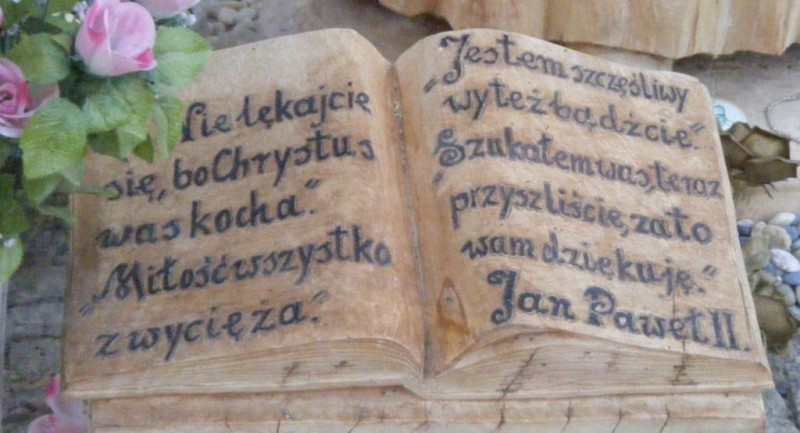 Nie lękajcie
się, bo Chrystus
was kocha."
"Miłość wszystko
zwycięża."
"Jestem szczęśliwy
wy też bądźcie."
"Szukałem was, teraz
przyszliście, za to
wam dziękuję."
Jan Paweł II.